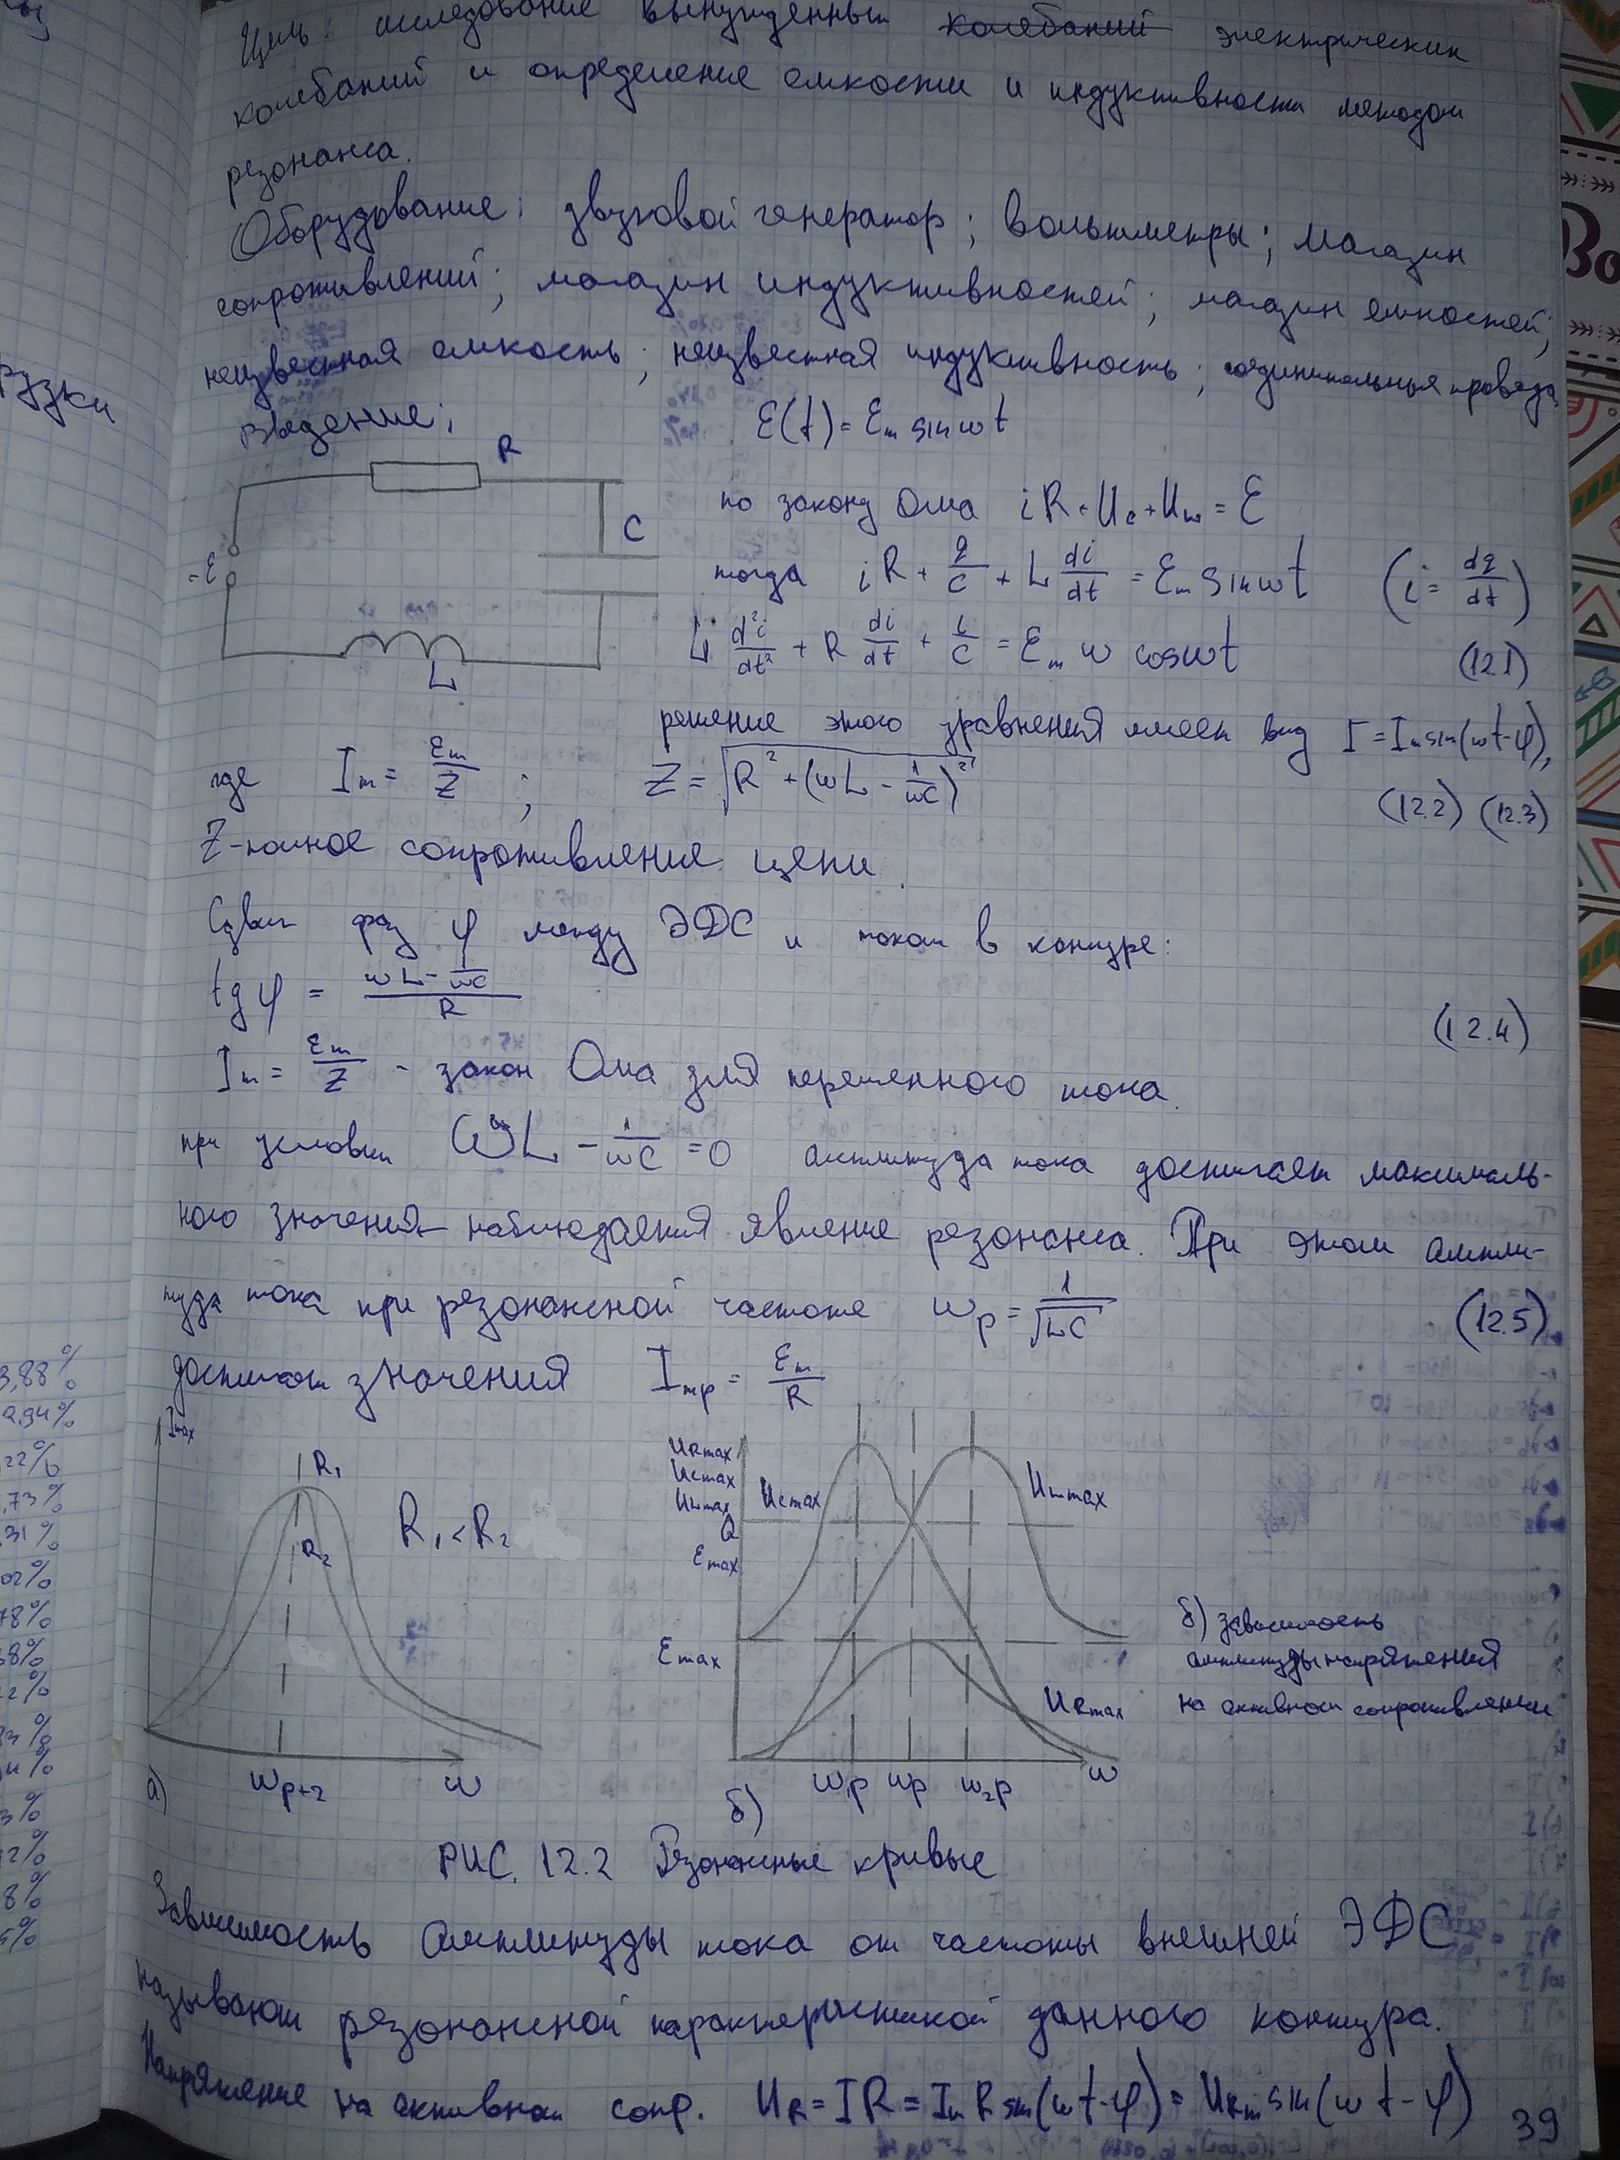 Цель: исследование вынужденных колебаний электрических
колебаний и определение емкости и индуктивности методом
резонанса.
Оборудование: звуковой генератор; вольтметры; магазин
сопротивлений; магазин индуктивностей; магазин емкостей;
неизвестная емкость; неизвестная индуктивность; соединительные провода
рузки
Введение:
ℰ(t) = ℰm sin ωt
R
C
~ℰ
L
по закону Ома iR + Uc + UL = ℰ
тогда iR + q/C + L di/dt = ℰm sin ωt (i = dq/dt)
L d²i/dt² + R di/dt + i/C = ℰm ω cos ωt (12.1)
решение этого уравнения имеет вид I = Im sin(ωt-φ),
где Im = ℰm/Z ; Z = √(R² + (ωL - 1/ωC)²) (12.2) (12.3)
Z-полное сопротивление цепи.
Сдвиг фаз φ между ЭДС и током в контуре:
tg φ = (ωL - 1/ωC)/R (12.4)
Im = ℰm/Z - закон Ома для переменного тока.
при условии ωL - 1/ωC = 0 амплитуда тока достигает максималь-
ного значения - наблюдается явление резонанса. При этом ампли-
туда тока при резонансной частоте ωp = 1/√LC (12.5)
достигает значения Imp = ℰm/R
3,88%
,22%
,73%
,31%
02%
78%
Imax
R₁
R₂
R₁ < R₂
ωp+2
ω
а)
URmax
Ucmax
ULmax
Q
ℰmax
Ucmax
ULmax
ℰmax
URmax
ω₁p ωp ω₂p ω
б)
б) зависимость
амплитуды напряжения
на активном сопротивлении
РИС. 12.2 Резонансные кривые
Зависимость амплитуды тока от частоты внешней ЭДС
называют резонансной характеристикой данного контура.
Напряжение на активном сопр. UR = IR = Im R sin(ωt-φ) = URm sin(ωt-φ)
39